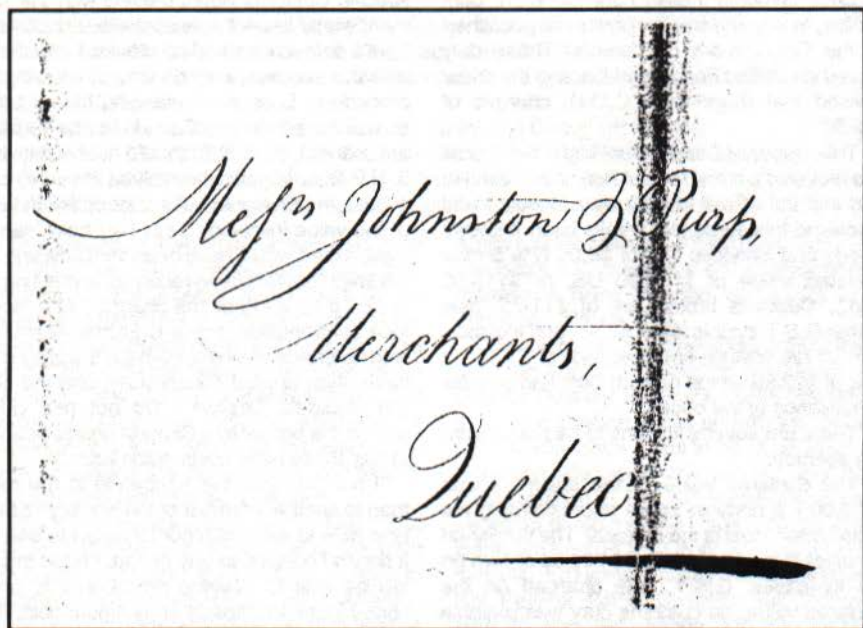 Meſsrs Johnston & Purſs,
Merchants,
Quebec